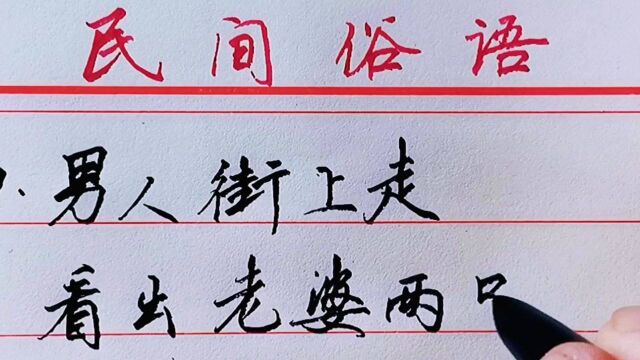 民间俗语
男人街上走
看出老婆两